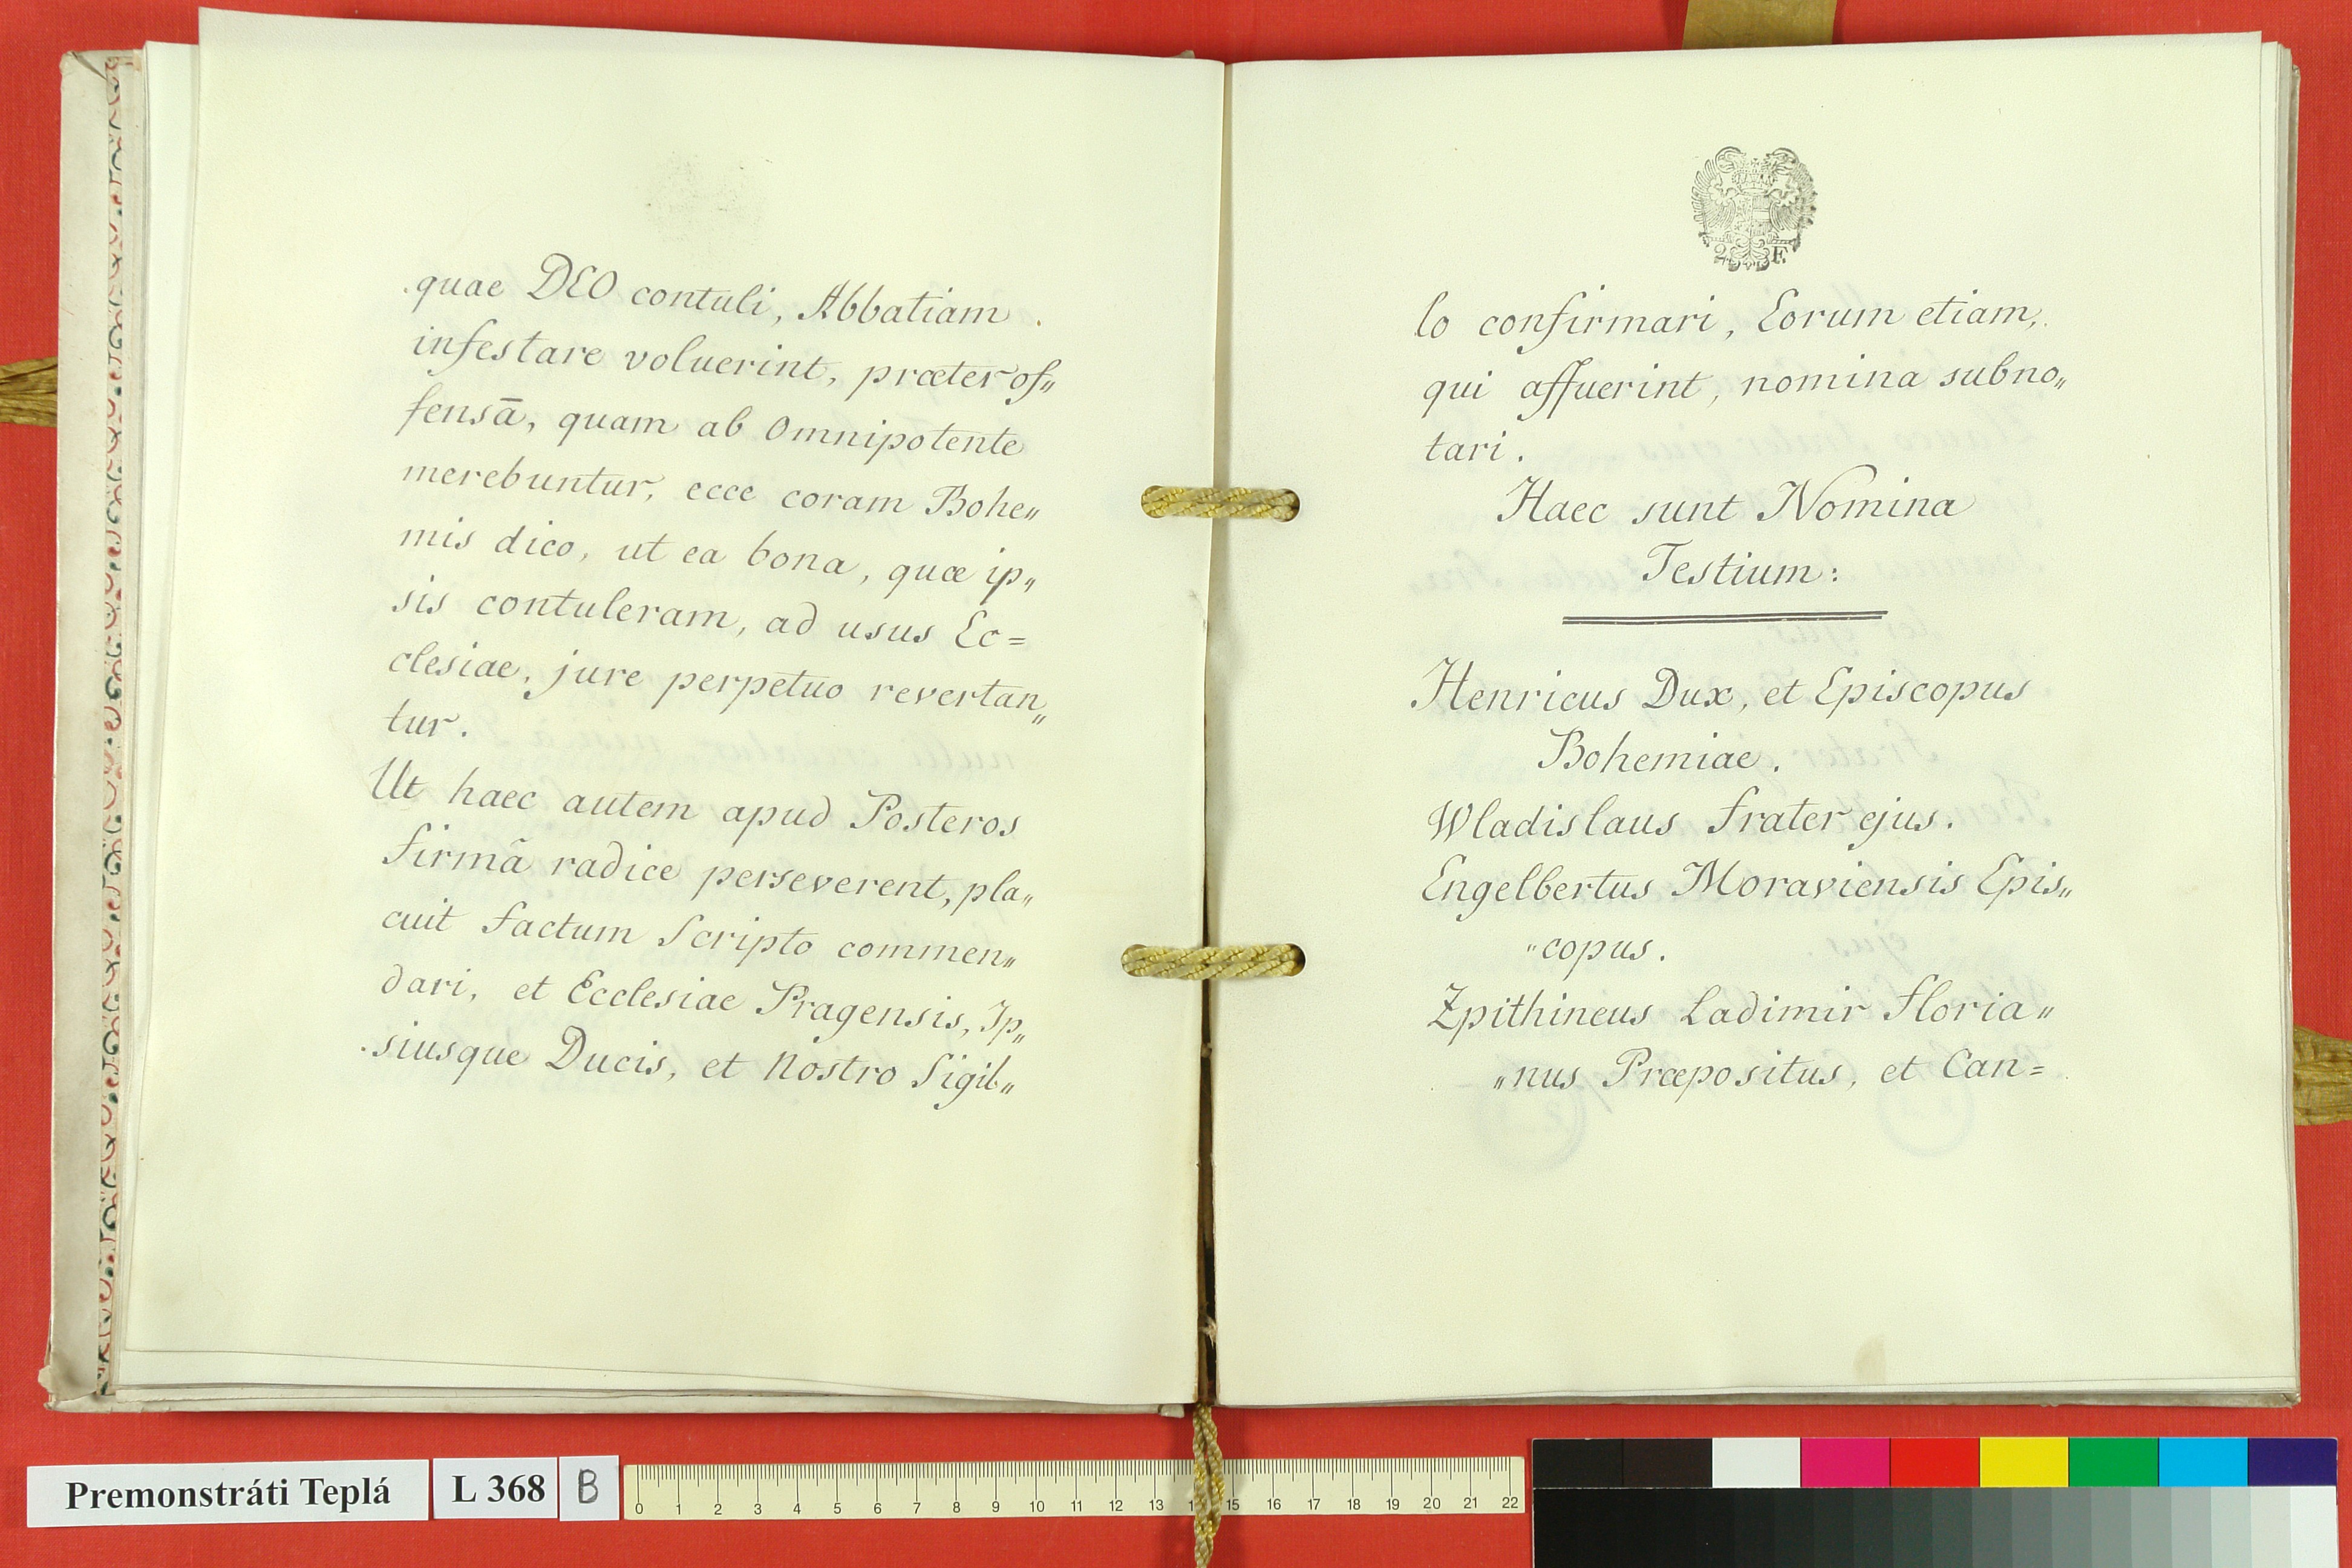 quae DEO contuli, Abbatiam
infestare voluerint, præter of„
fensā, quam ab Omnipotente
merebuntur, ecce coram Bohe„
mis dico, ut ea bona, quæ ip„
sis contuleram, ad usus Ec=
clesiae, jure perpetuo revertan„
tur.
Ut haec autem apud Posteros
firmâ radice perseverent, pla„
cuit factum Scripto commen„
dari, et Ecclesiae Pragensis, Ip„
siusque Ducis, et Nostro Sigil„
2 F.
lo confirmari, Eorum etiam,
qui affuerint, nomina subno„
tari.
Haec sunt Nomina
Testium:
Henricus Dux, et Episcopus
Bohemiae.
Wladislaus frater ejus.
Engelbertus Moraviensis Epis„
„copus.
Zpithineus Ladimir Floria„
„nus Præpositus, et Can=
Premonstráti Teplá
L 368
B
0 1 2 3 4 5 6 7 8 9 10 11 12 13 14 15 16 17 18 19 20 21 22